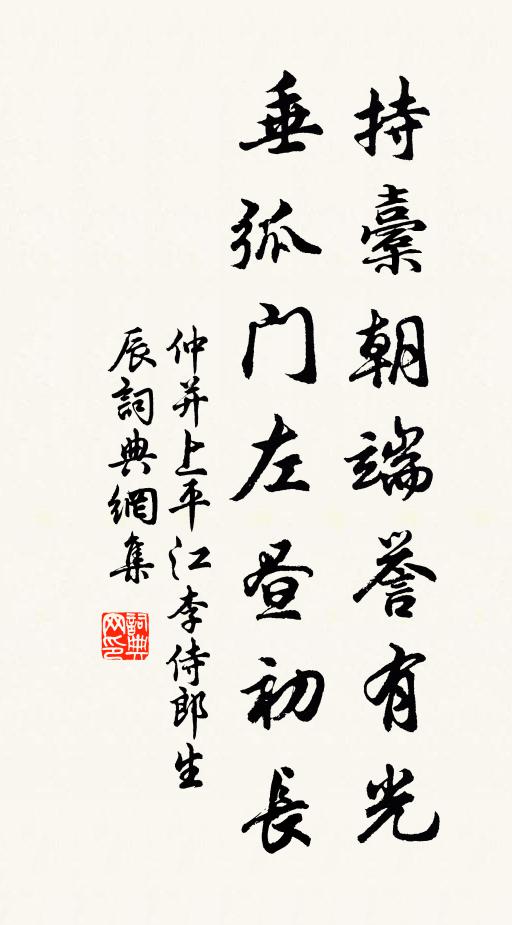 持橐朝端誉有光
垂弧門左昼初長
仲并上平江李侍郎生
辰詞典網集
詞典网印